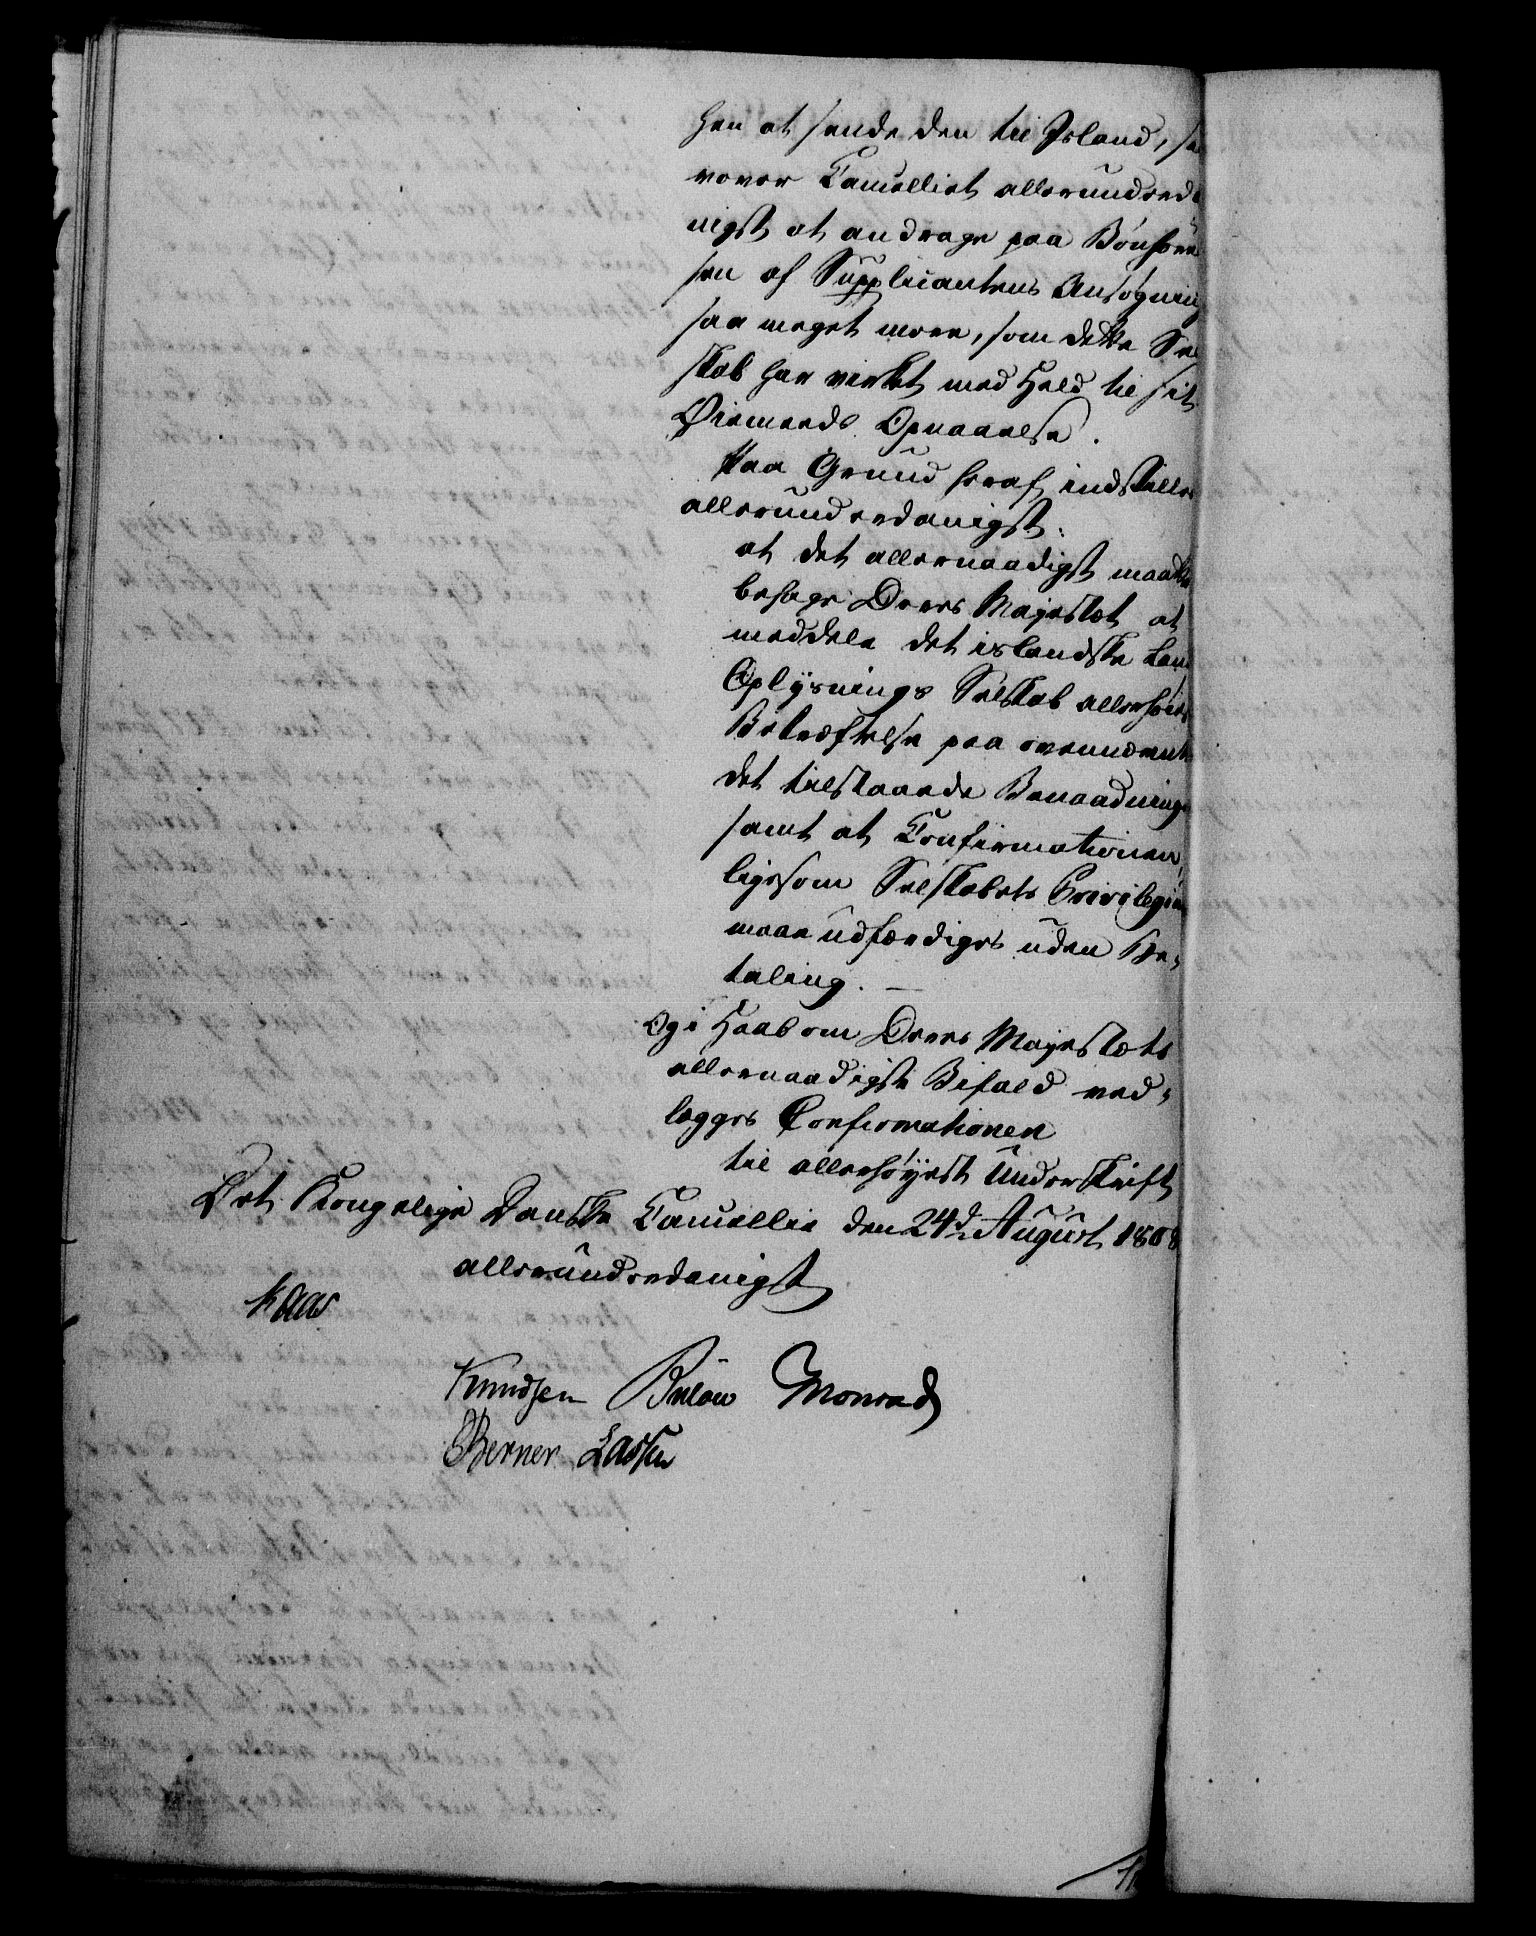 hen at sende den til Island, saa
vover Cancelliet allerunderda
nigst at andrage paa Bønhørel
sen af Supplicantens Ansøgning
saa meget mere, som dette Sel
skab har virket med Held til sit
Øiemeeds Opnaaelse.
Paa Grund heraf indstilles
allerunderdanigst:
at det allernaadigst maatte
behage Deres Majestæt at
meddele det islandske Land
Oplysnings Selskab allerhøieste
Bekræftelse paa ovennævnte
det tilstaaede Benaadninger
samt at Confirmationen,
ligesom Selskabets Privilegium
maae udfærdiges uden Be-
taling. —
Og i Haab om Deres Majestæts
allernaadigste Bifald ved-
lægges Confirmationen
til allerhøyest Underskrift
Det Kongelige Danske Cancellie den 24d August 1808
allerunderdanigst
Kaas
Knudsen Bülow Monrad
Berner Lassen